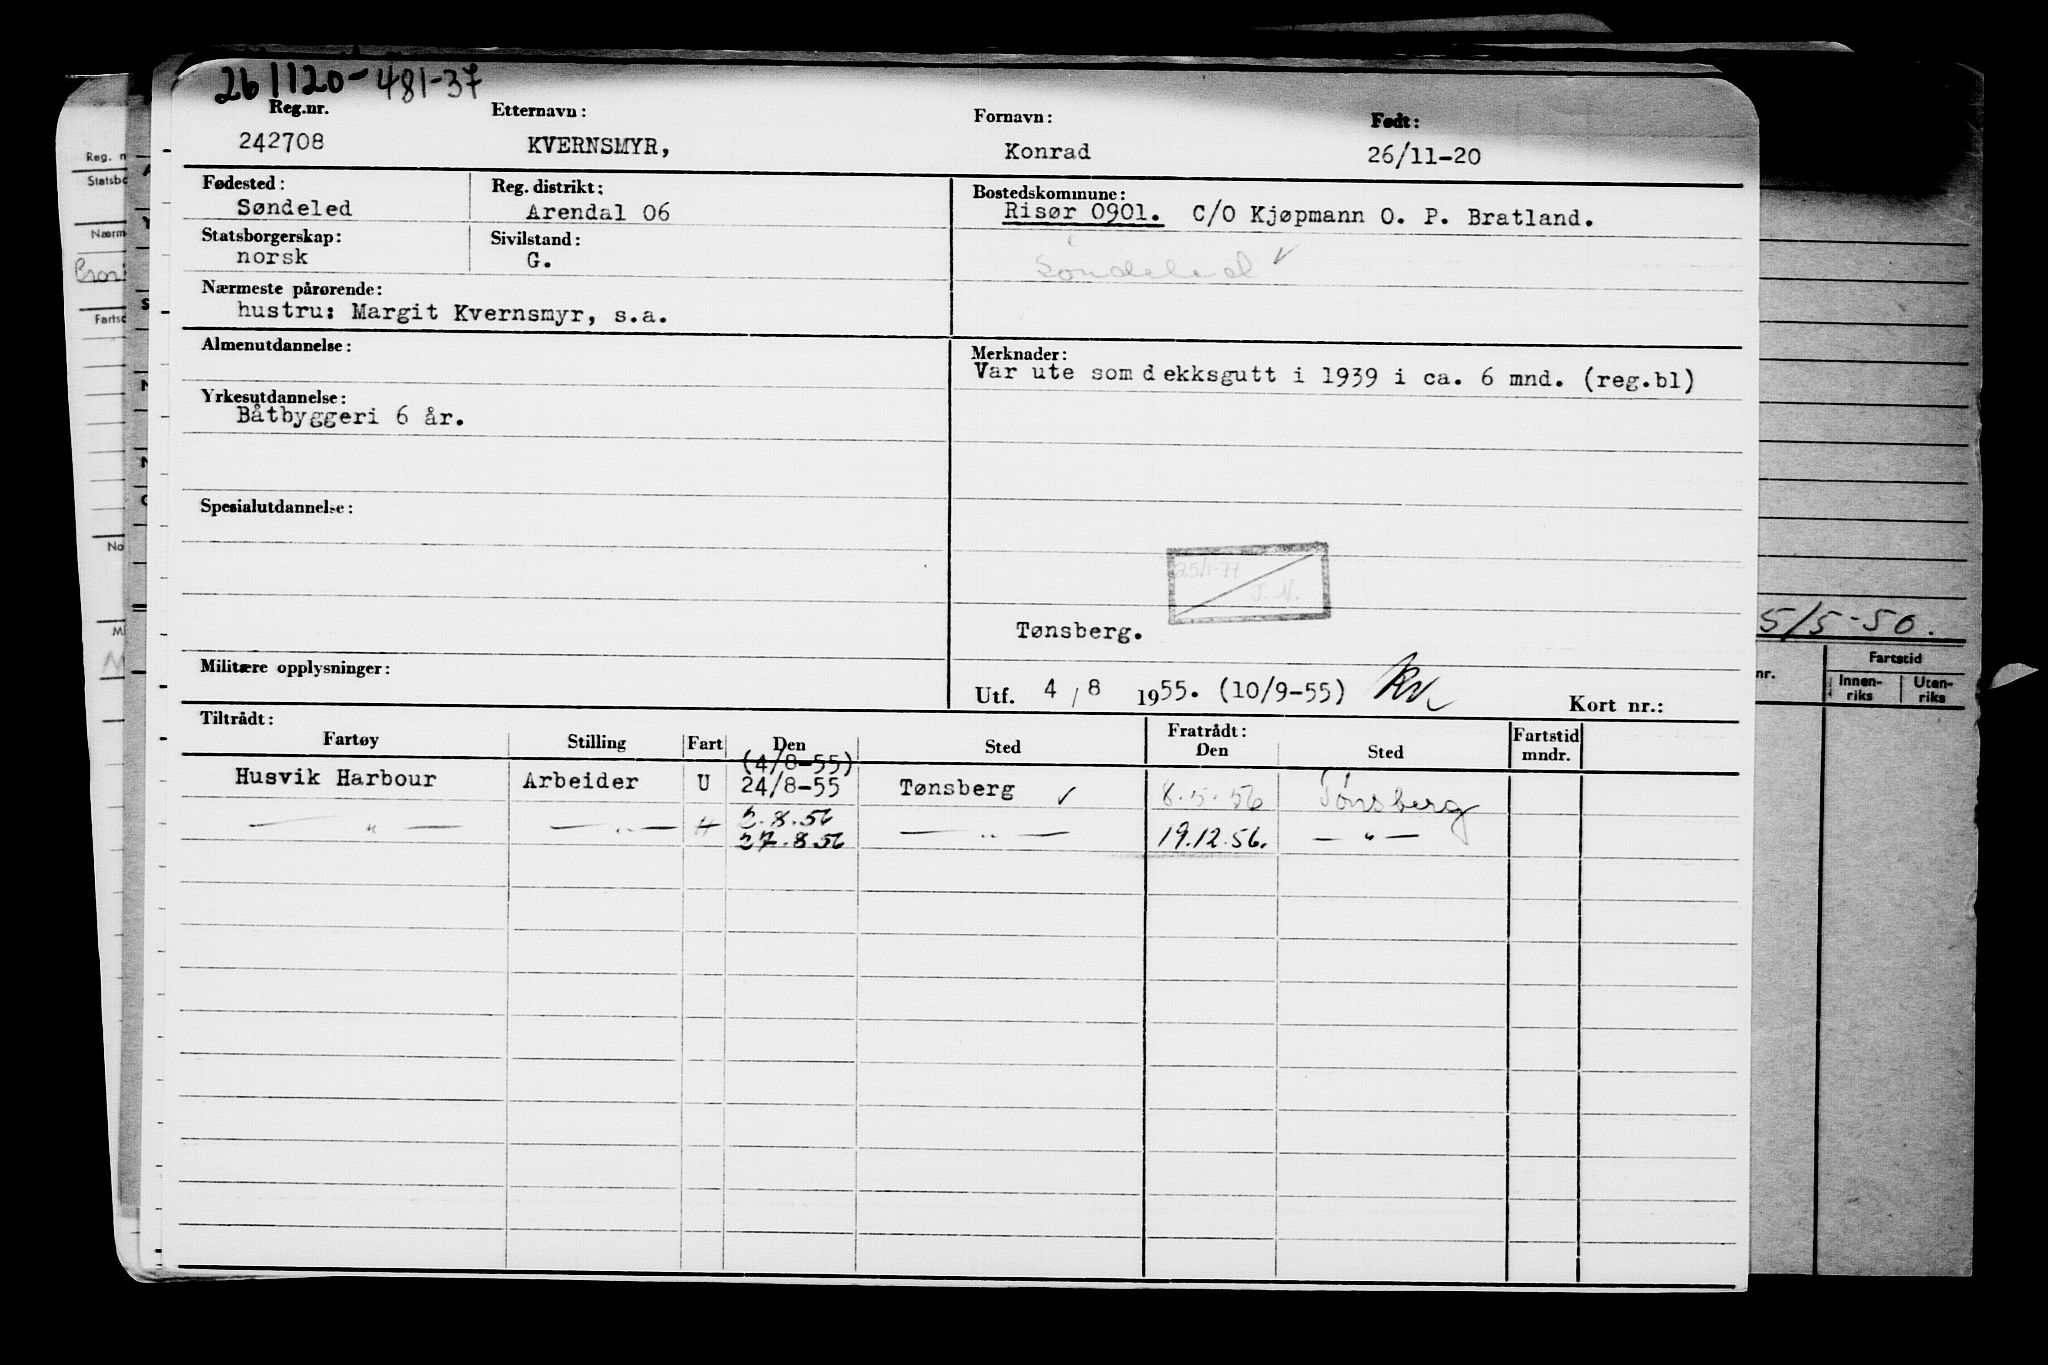 261120-481-37
Reg.nr. Etternavn: Fornavn: Født:
242708 KVERNSMYR, Konrad 26/11-20
Fødested: Reg. distrikt: Bostedskommune:
Søndeled Arendal 06 Risør 0901. C/O Kjøpmann O. P. Bratland.
Statsborgerskap: Sivilstand:
norsk G. Søndeled ✓
Nærmeste pårørende:
hustru: Margit Kvernsmyr, s.a.
Almenutdannelse: Merknader:
Var ute som dekksgutt i 1939 i ca. 6 mnd. (reg.bl)
Yrkesutdannelse:
Båtbyggeri 6 år.
Spesialutdannelse:
25/1-77
J. N.
Tønsberg.
Militære opplysninger:
Utf. 4 / 8 1955. (10/9-55) Kort nr.:
Tiltrådt: Fratrådt:
Fartøy Stilling Fart Den Sted Den Sted Fartstid mndr.
(4/8-55)
Husvik Harbour Arbeider U 24/8-55 Tønsberg ✓ 8.5.56 Tønsberg
2.8.56
— " — — " — H 27.8.56 — " — 19.12.56. — " —
Reg. n
Statsbo
Nærm
Fartsc
No
M
5/5-50.
nr. Fartstid
Innen-riks Uten-riks